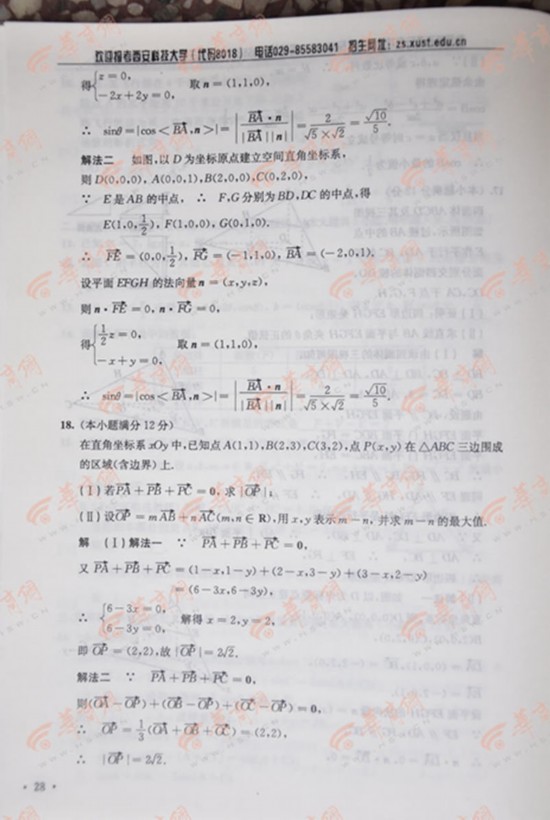 欢迎报考西安科技大学(代码2018) 电话029-85583041 招生网址:zs.xust.edu.cn
得{z=0, -2x+2y=0, 取n=(1,1,0),
∴ sinθ=|cos<BA→,n>|=|BA→·n/|BA→||n||=2/(√5×√2)=√10/5.
解法二 如图,以D为坐标原点建立空间直角坐标系,
则D(0,0,0),A(0,0,1),B(2,0,0),C(0,2,0),
∵ E是AB的中点, ∴ F,G分别为BD,DC的中点,得
E(1,0,1/2),F(1,0,0),G(0,1,0).
∴ FE→=(0,0,1/2),FG→=(-1,1,0),BA→=(-2,0,1).
设平面EFGH的法向量n=(x,y,z),
则n·FE→=0,n·FG→=0,
得{1/2z=0, -x+y=0, 取n=(1,1,0),
∴ sinθ=|cos<BA→,n>|=|BA→·n/|BA→||n||=2/(√5×√2)=√10/5.
18.(本小题满分12分)
在直角坐标系xOy中,已知点A(1,1),B(2,3),C(3,2),点P(x,y)在△ABC三边围成
的区域(含边界)上.
(Ⅰ)若PA→+PB→+PC→=0,求|OP→|;
(Ⅱ)设OP→=mAB→+nAC→(m,n∈R),用x,y表示m-n,并求m-n的最大值.
解 (Ⅰ)解法一 ∵ PA→+PB→+PC→=0,
又PA→+PB→+PC→=(1-x,1-y)+(2-x,3-y)+(3-x,2-y)
=(6-3x,6-3y),
∴ {6-3x=0, 6-3y=0, 解得x=2,y=2,
即OP→=(2,2),故|OP→|=2√2.
解法二 ∵ PA→+PB→+PC→=0,
则(OA→-OP→)+(OB→-OP→)+(OC→-OP→)=0,
∴ OP→=1/3(OA→+OB→+OC→)=(2,2),
∴ |OP→|=2√2.
· 28 ·